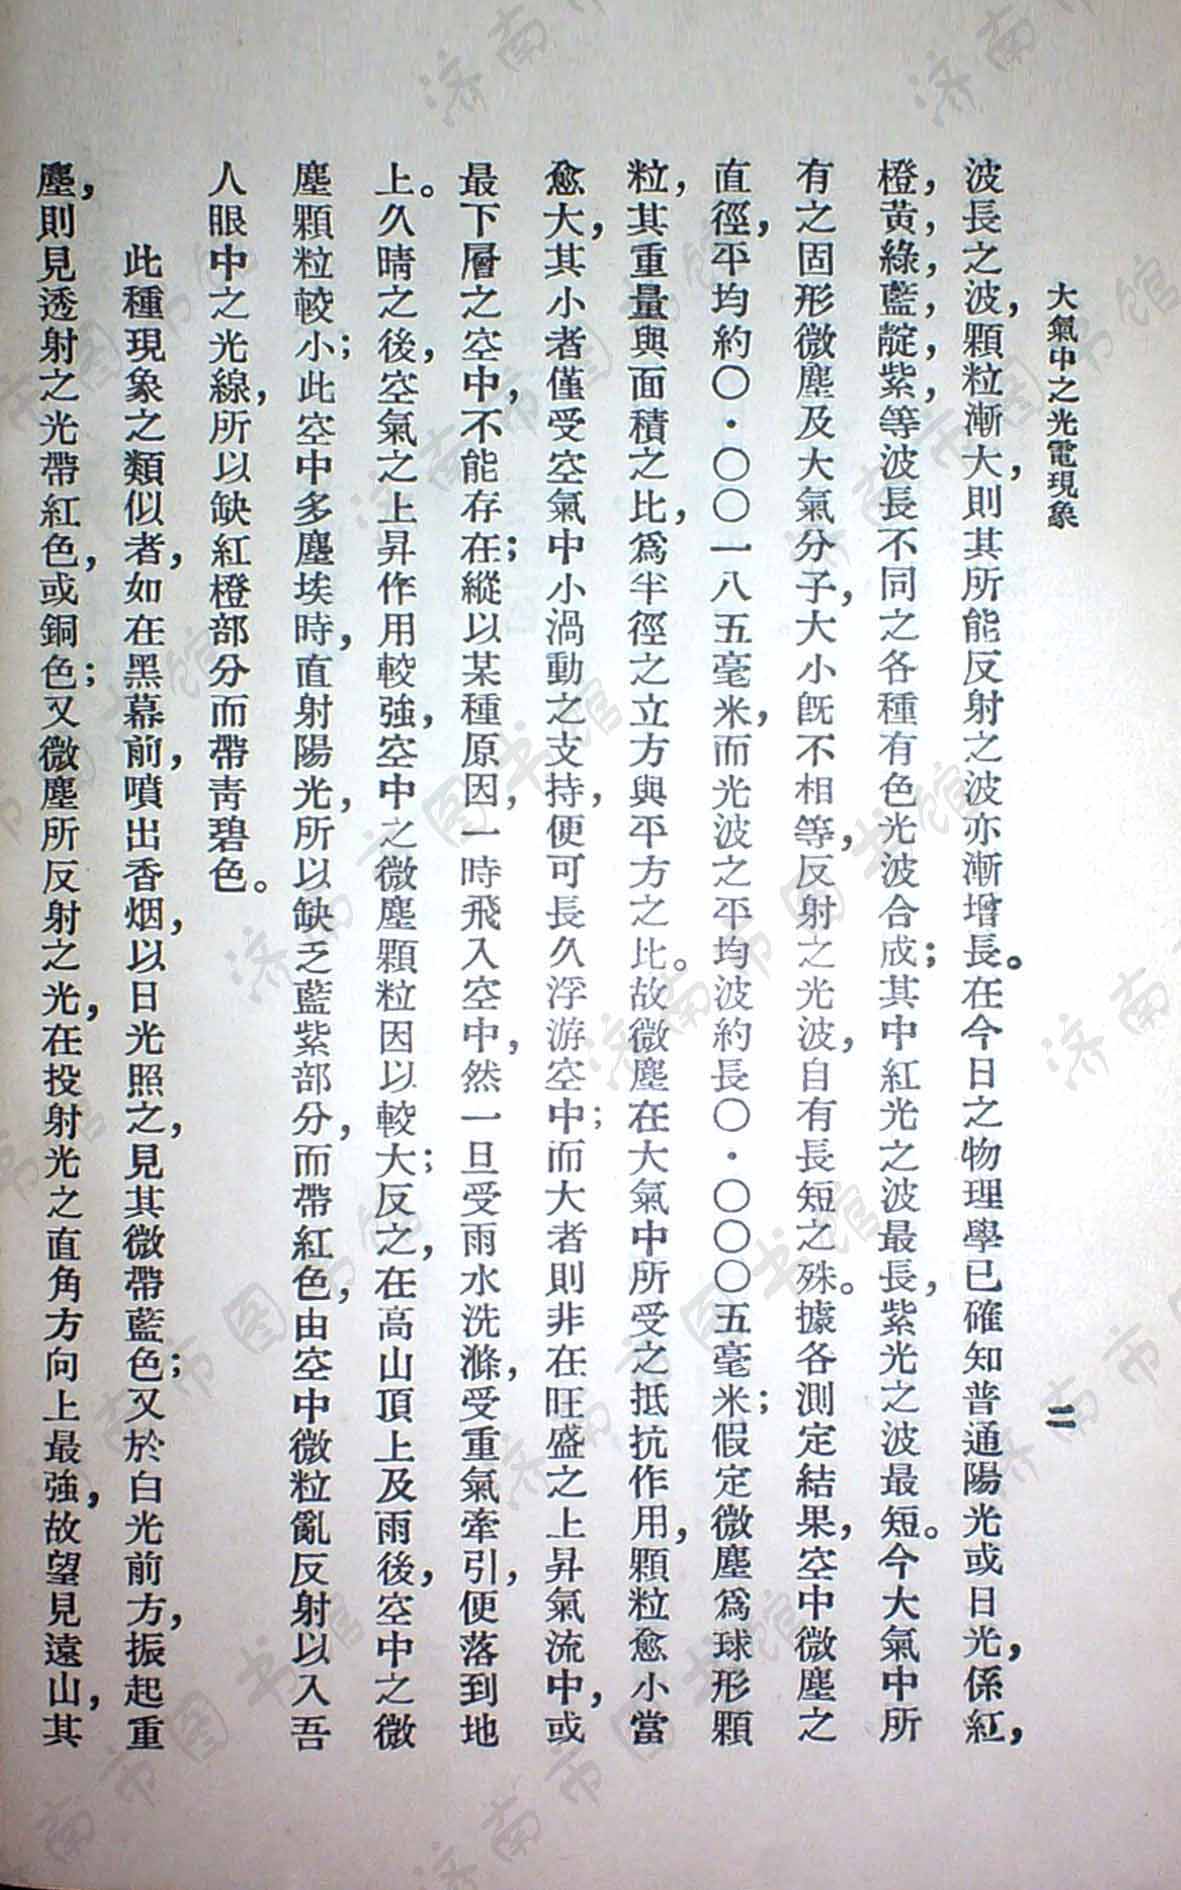 大氣中之光電現象
二
波長之波，顆粒漸大，則其所能反射之波亦漸增長。在今日之物理學已確知普通陽光或日光，係紅，
橙，黃，綠，藍，靛，紫，等波長不同之各種有色光波合成；其中紅光之波最長，紫光之波最短。今大氣中所
有之固形微塵及大氣分子，大小旣不相等，反射之光波，自有長短之殊。據各測定結果，空中微塵之
直徑，平均約〇·〇〇一八五毫米，而光波之平均波約長〇·〇〇〇五毫米；假定微塵爲球形顆
粒，其重量與面積之比，爲半徑之立方與平方之比。故微塵在大氣中所受之抵抗作用，顆粒愈小當
愈大，其小者僅受空氣中小渦動之支持，便可長久浮游空中；而大者則非在旺盛之上昇氣流中，或
最下層之空中，不能存在；縱以某種原因，一時飛入空中，然一旦受雨水洗滌，受重氣牽引，便落到地
上。久晴之後，空氣之上昇作用較強，空中之微塵顆粒因以較大；反之，在高山頂上及雨後，空中之微
塵顆粒較小；此空中多塵埃時，直射陽光，所以缺乏藍紫部分，而帶紅色，由空中微粒亂反射以入吾
人眼中之光線，所以缺紅橙部分而帶青碧色。
此種現象之類似者，如在黑幕前，噴出香烟，以日光照之，見其微帶藍色；又於白光前方，振起重
塵，則見透射之光帶紅色，或銅色；又微塵所反射之光，在投射光之直角方向上最強，故望見遠山，其
济南市图书馆